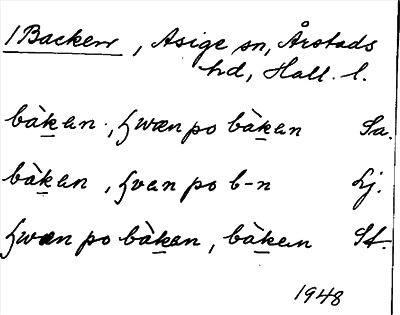 1 Backen, Asige sn, Årstads
hd, Hall. l.
bàk̲an., ʒwæn po bàk̲an Sa.
bàk̲an, ʒvan po b-n Lj.
ʒwæn po bàk̲an, bàk̲an St.
1948